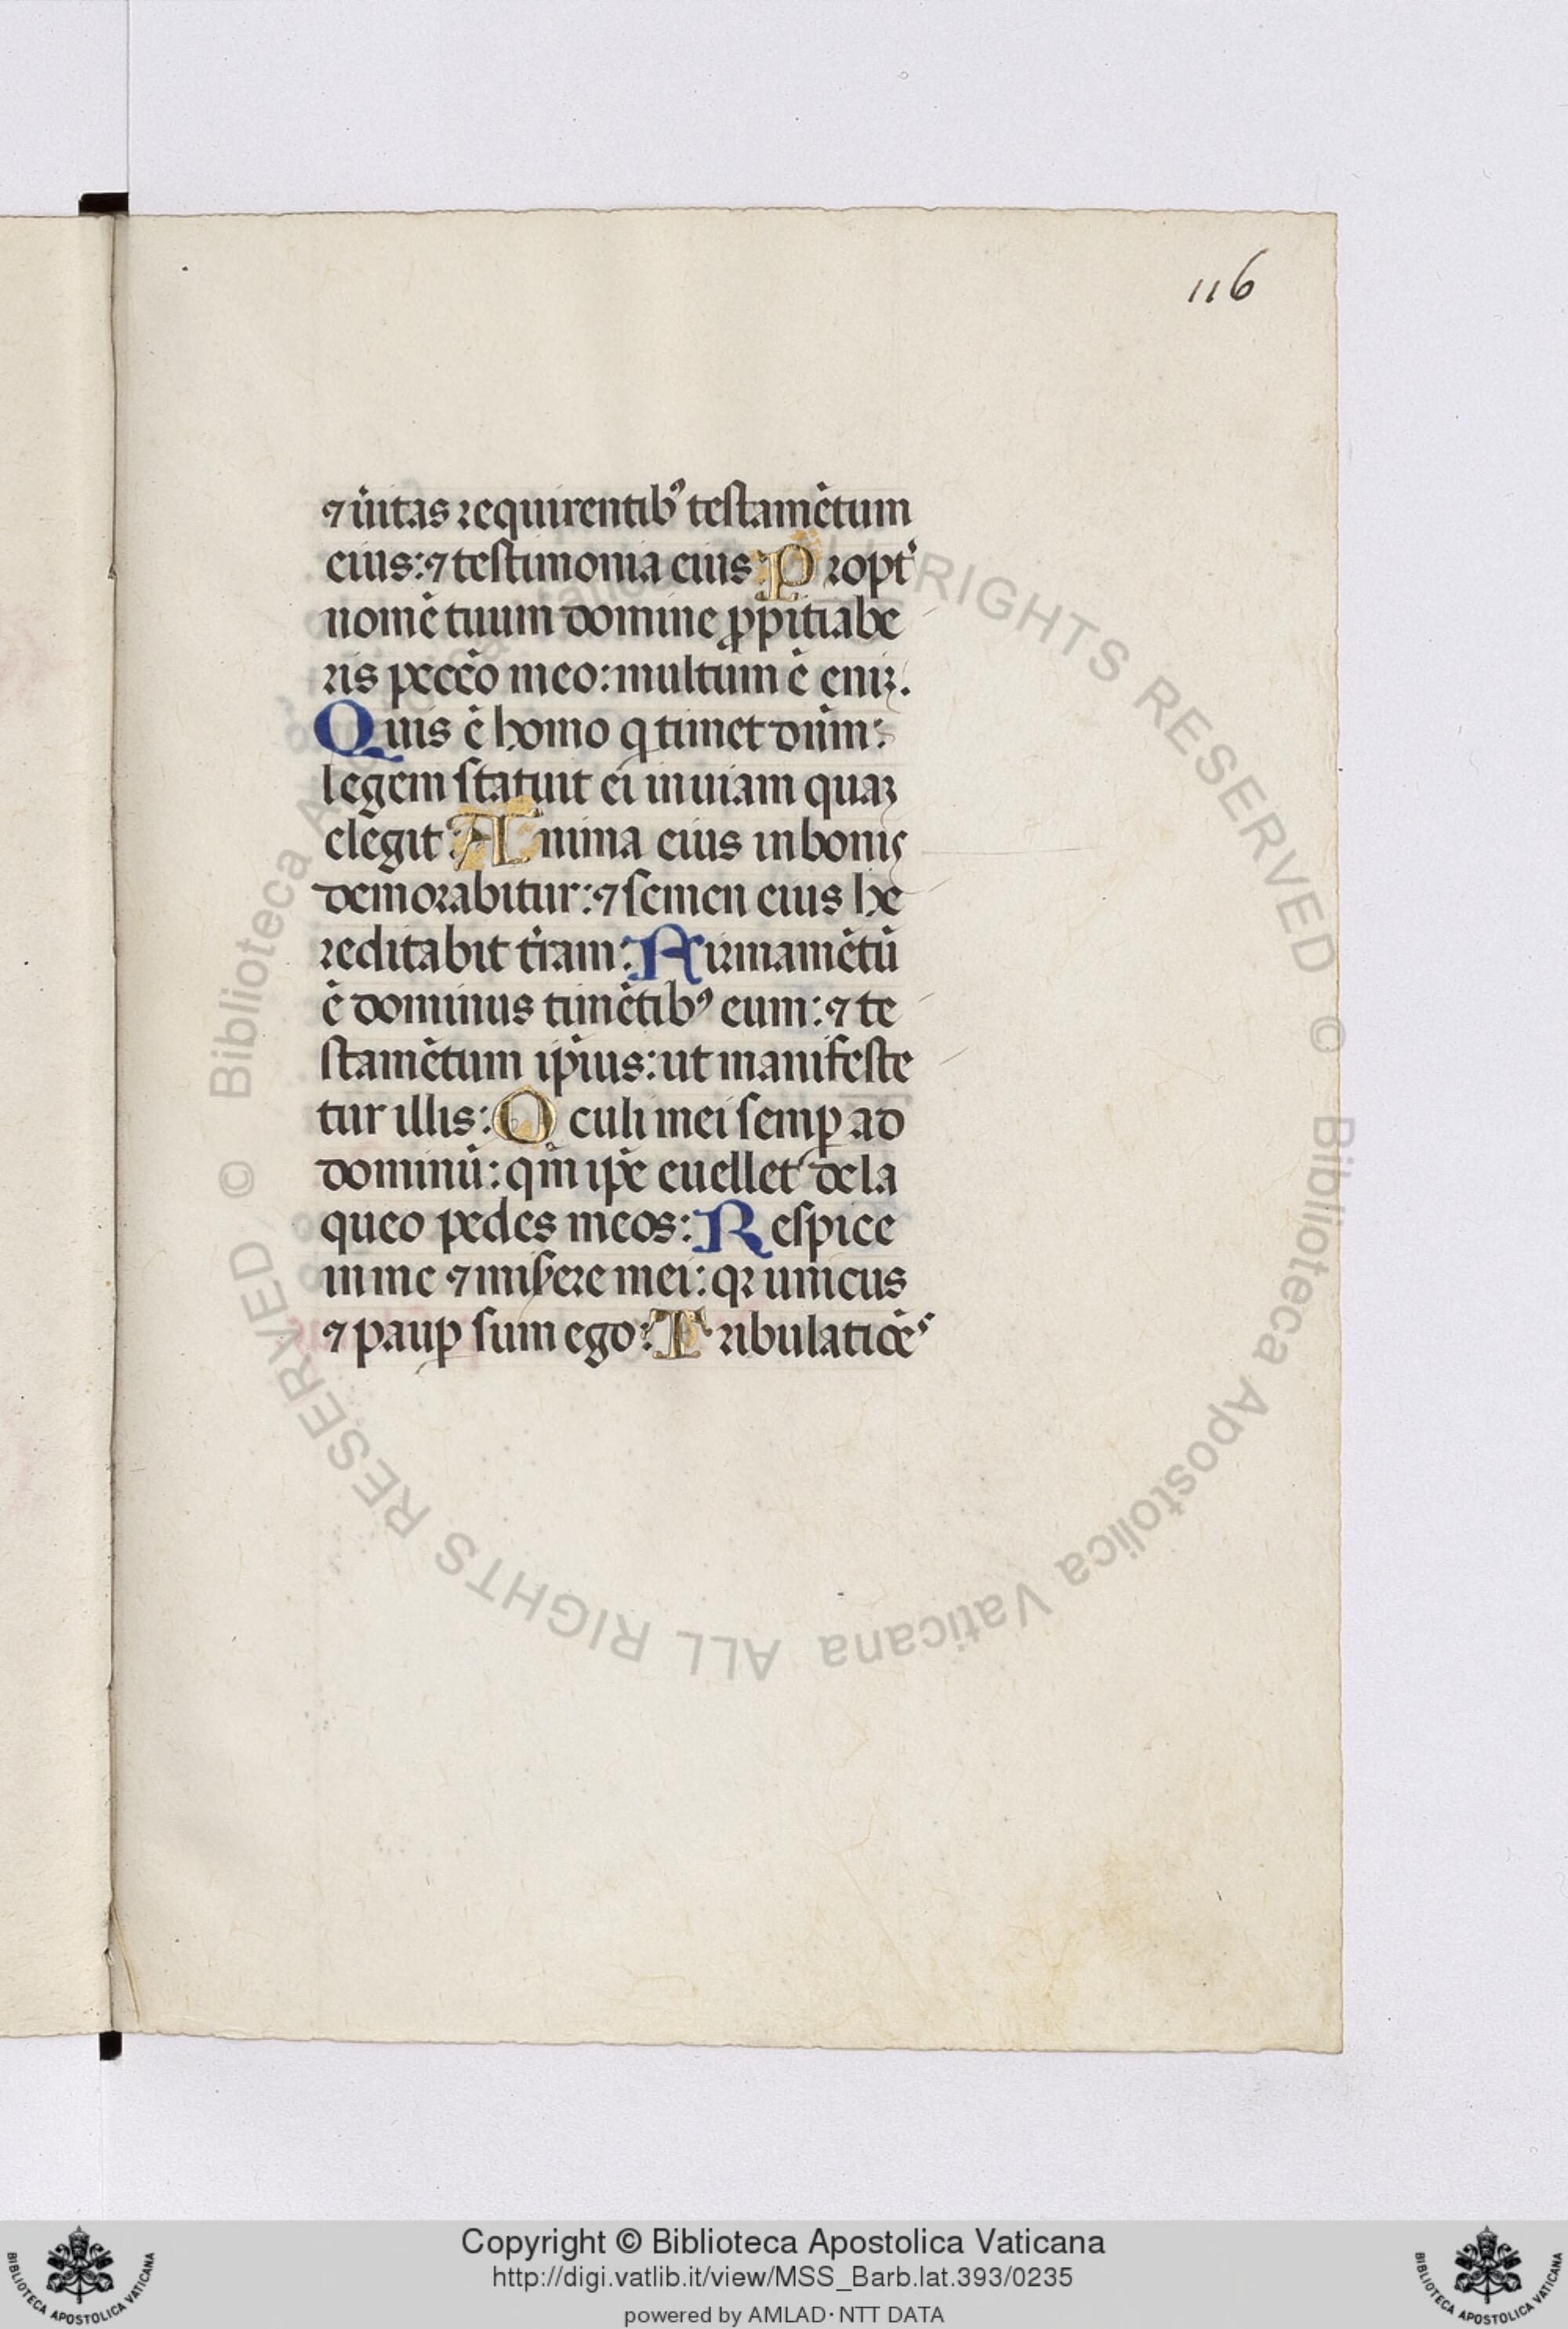 116
⁊ ůitas requirentibꝰ testamētum
eius: ⁊ testimonia eius: Propt᷑
nomē tuum domine ꝓpitiabe
ris pccc̄o meo: multum ē eniꝫ.
Quis ē homo q timet dūm:
legem statuit ei in uiam quaꝫ
elegit: Anima eius in bonis
demorabitur: ⁊ semen eius he
reditabit tr̄am: Firmamētū
ē dominus timētibꝰ eum: ⁊ te
stamētum ip̄ius: ut manifeste
tur illis: Oculi mei semꝑ ad
dominū: qm̄ ip̄e euellet de la
queo pedes meos: Respice
in me ⁊ mis̄ere mei: qꝛ unicus
⁊ pauꝑ sum ego: Tribulatiōēs
© Biblioteca Apostolica Vaticana ALL RIGHTS RESERVED © Biblioteca Apostolica Vaticana ALL RIGHTS RESERVED
BIBLIOTECA APOSTOLICA VATICANA
Copyright © Biblioteca Apostolica Vaticana
http://digi.vatlib.it/view/MSS_Barb.lat.393/0235
powered by AMLAD·NTT DATA
BIBLIOTECA APOSTOLICA VATICANA